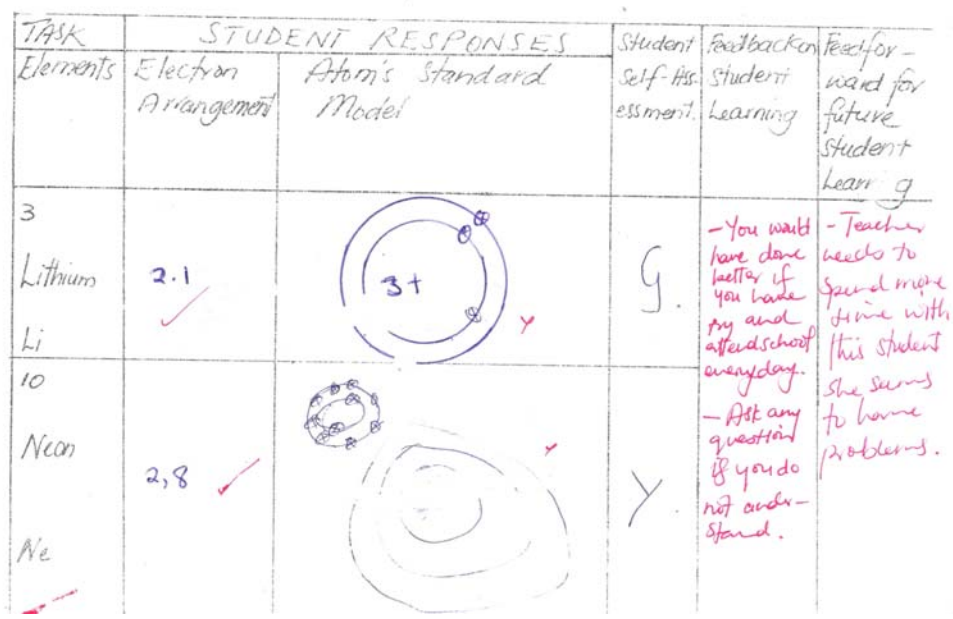 TASK
Elements
STUDENT RESPONSES
Electron
Arrangement
Atom's Standard
Model
Student
Self-Ass
essment.
Feedback on
Student
Learning
Feedfor-
ward for
future
student
Learn g
3
Lithium
Li
2.1
3+
Y
G.
- You would
have done
better if
you have
try and
attend school
everyday.
- Ask any
question
if you do
not under-
stand.
- Teacher
needs to
spend more
time with
this student
she seems
to have
problems.
10
Neon
Ne
2,8
Y
Y.